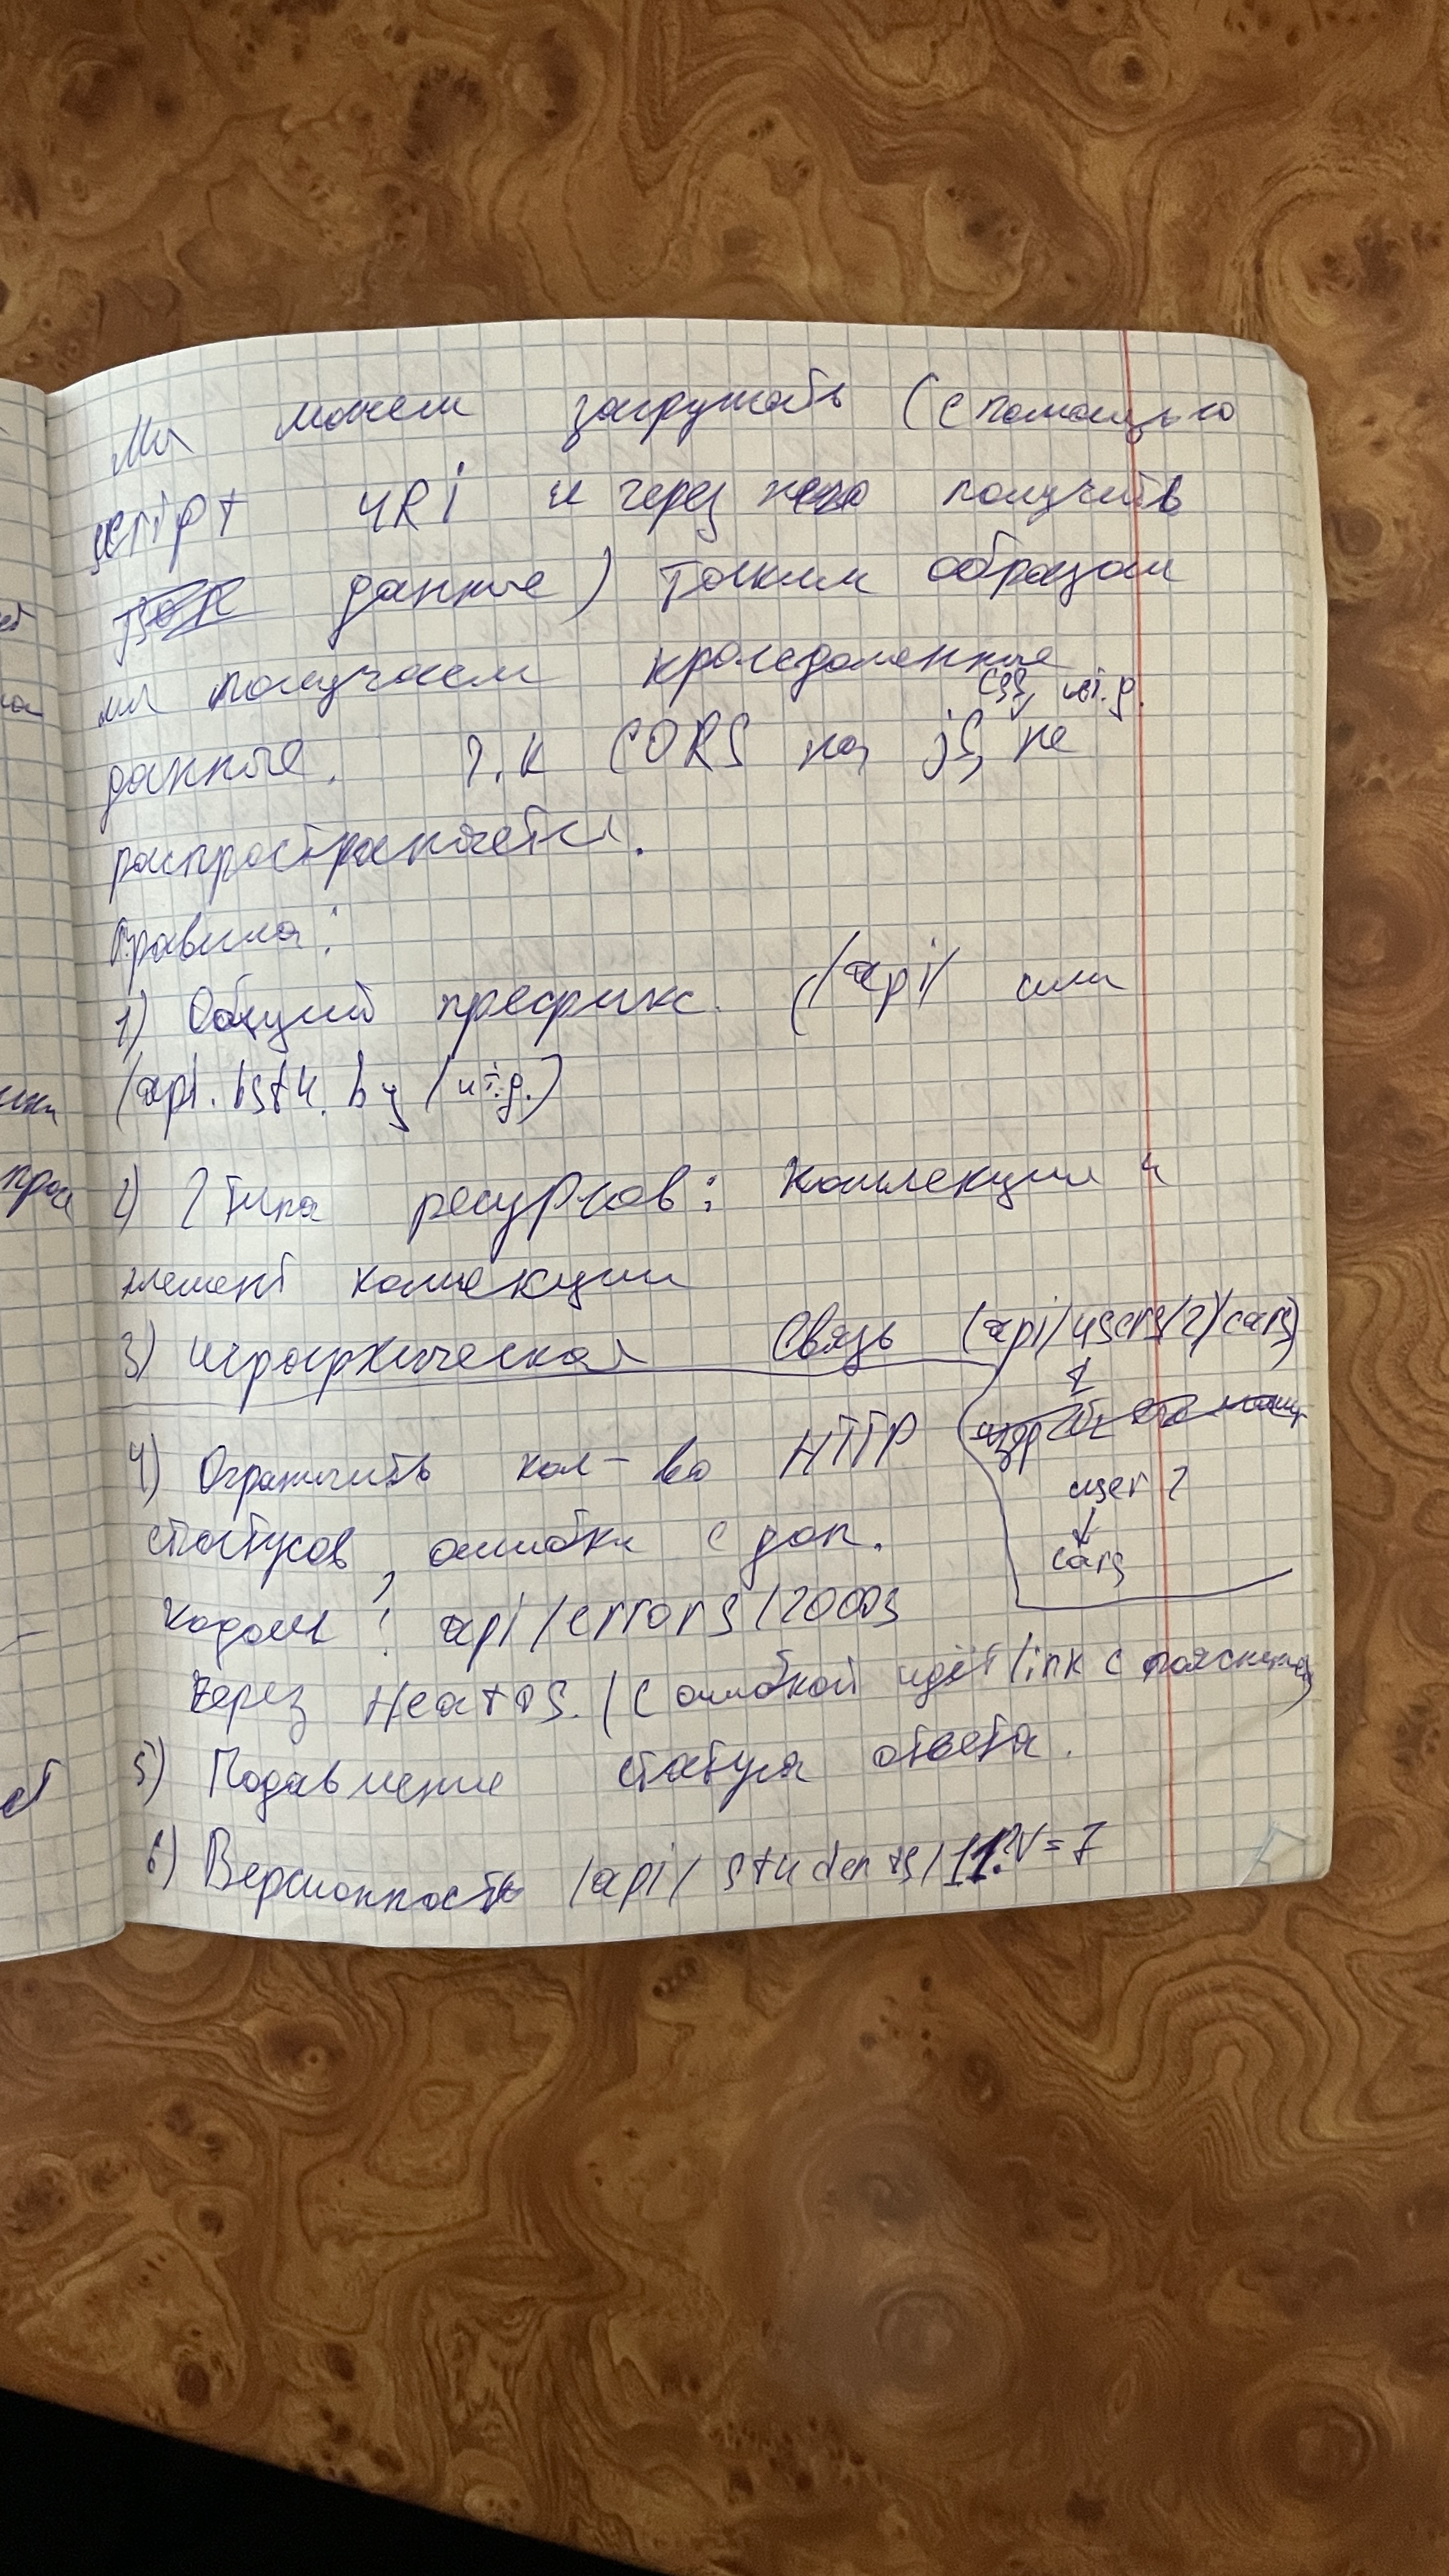 Мы можем загружать (с помощью
script URI и через него получить
данные) таким образом
мы получаем кроссдоменные
css, и т.д.
данные. т.к CORS на js, не
распространяется.
Правила:
1) Общий префикс. (/api/ или
/api.bstu.by/ и т.д.)
2) 2 типа ресурсов: Коллекция и
элемент коллекции
3) иерархическая связь (api/users/2/cars)
4) Ограничить кол-во HTTP
user 2
статусов, ошибки с доп.
cars
кодом! api/errors/20003
через HeatOS. (с ошибкой идёт link с пояснением)
5) Подавление статуса ответа.
6) Версионность /api/students/11?v=7